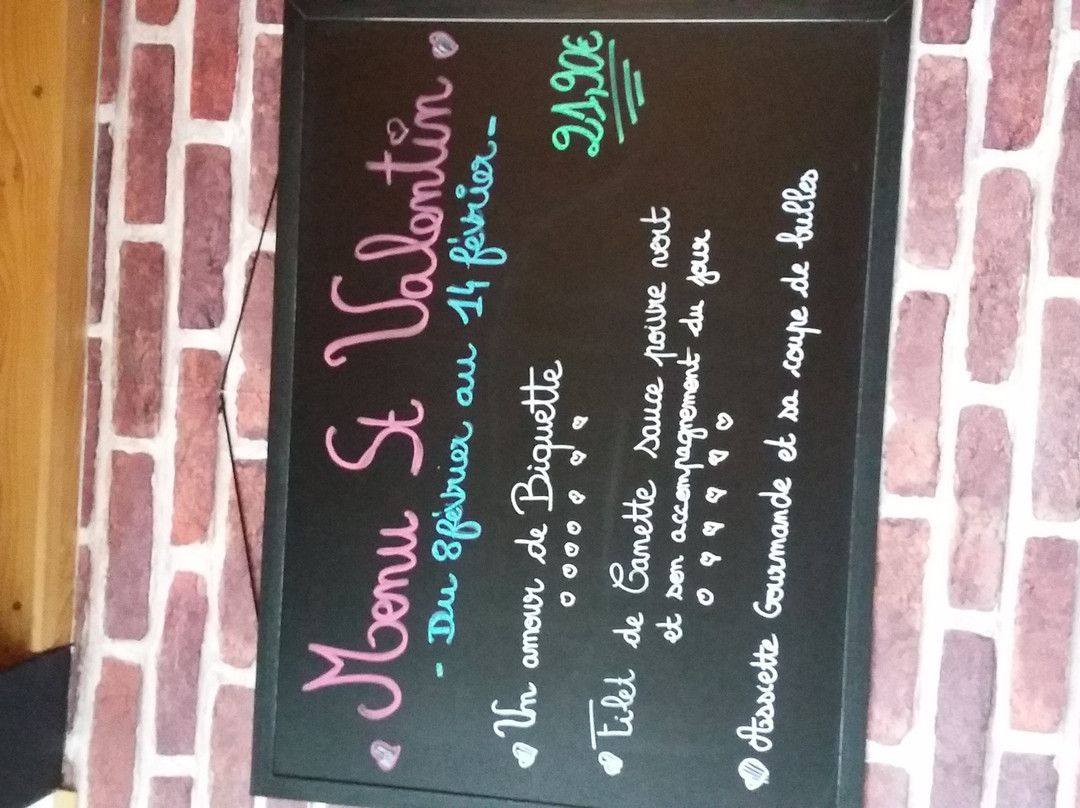 Menu St Valentin
- Du 8 février au 14 février -
21,90€
Un amour de Biquette
Filet de Canette sauce poivre vert
et son accompagnement du jour
Assiette Gourmande et sa coupe de bulles